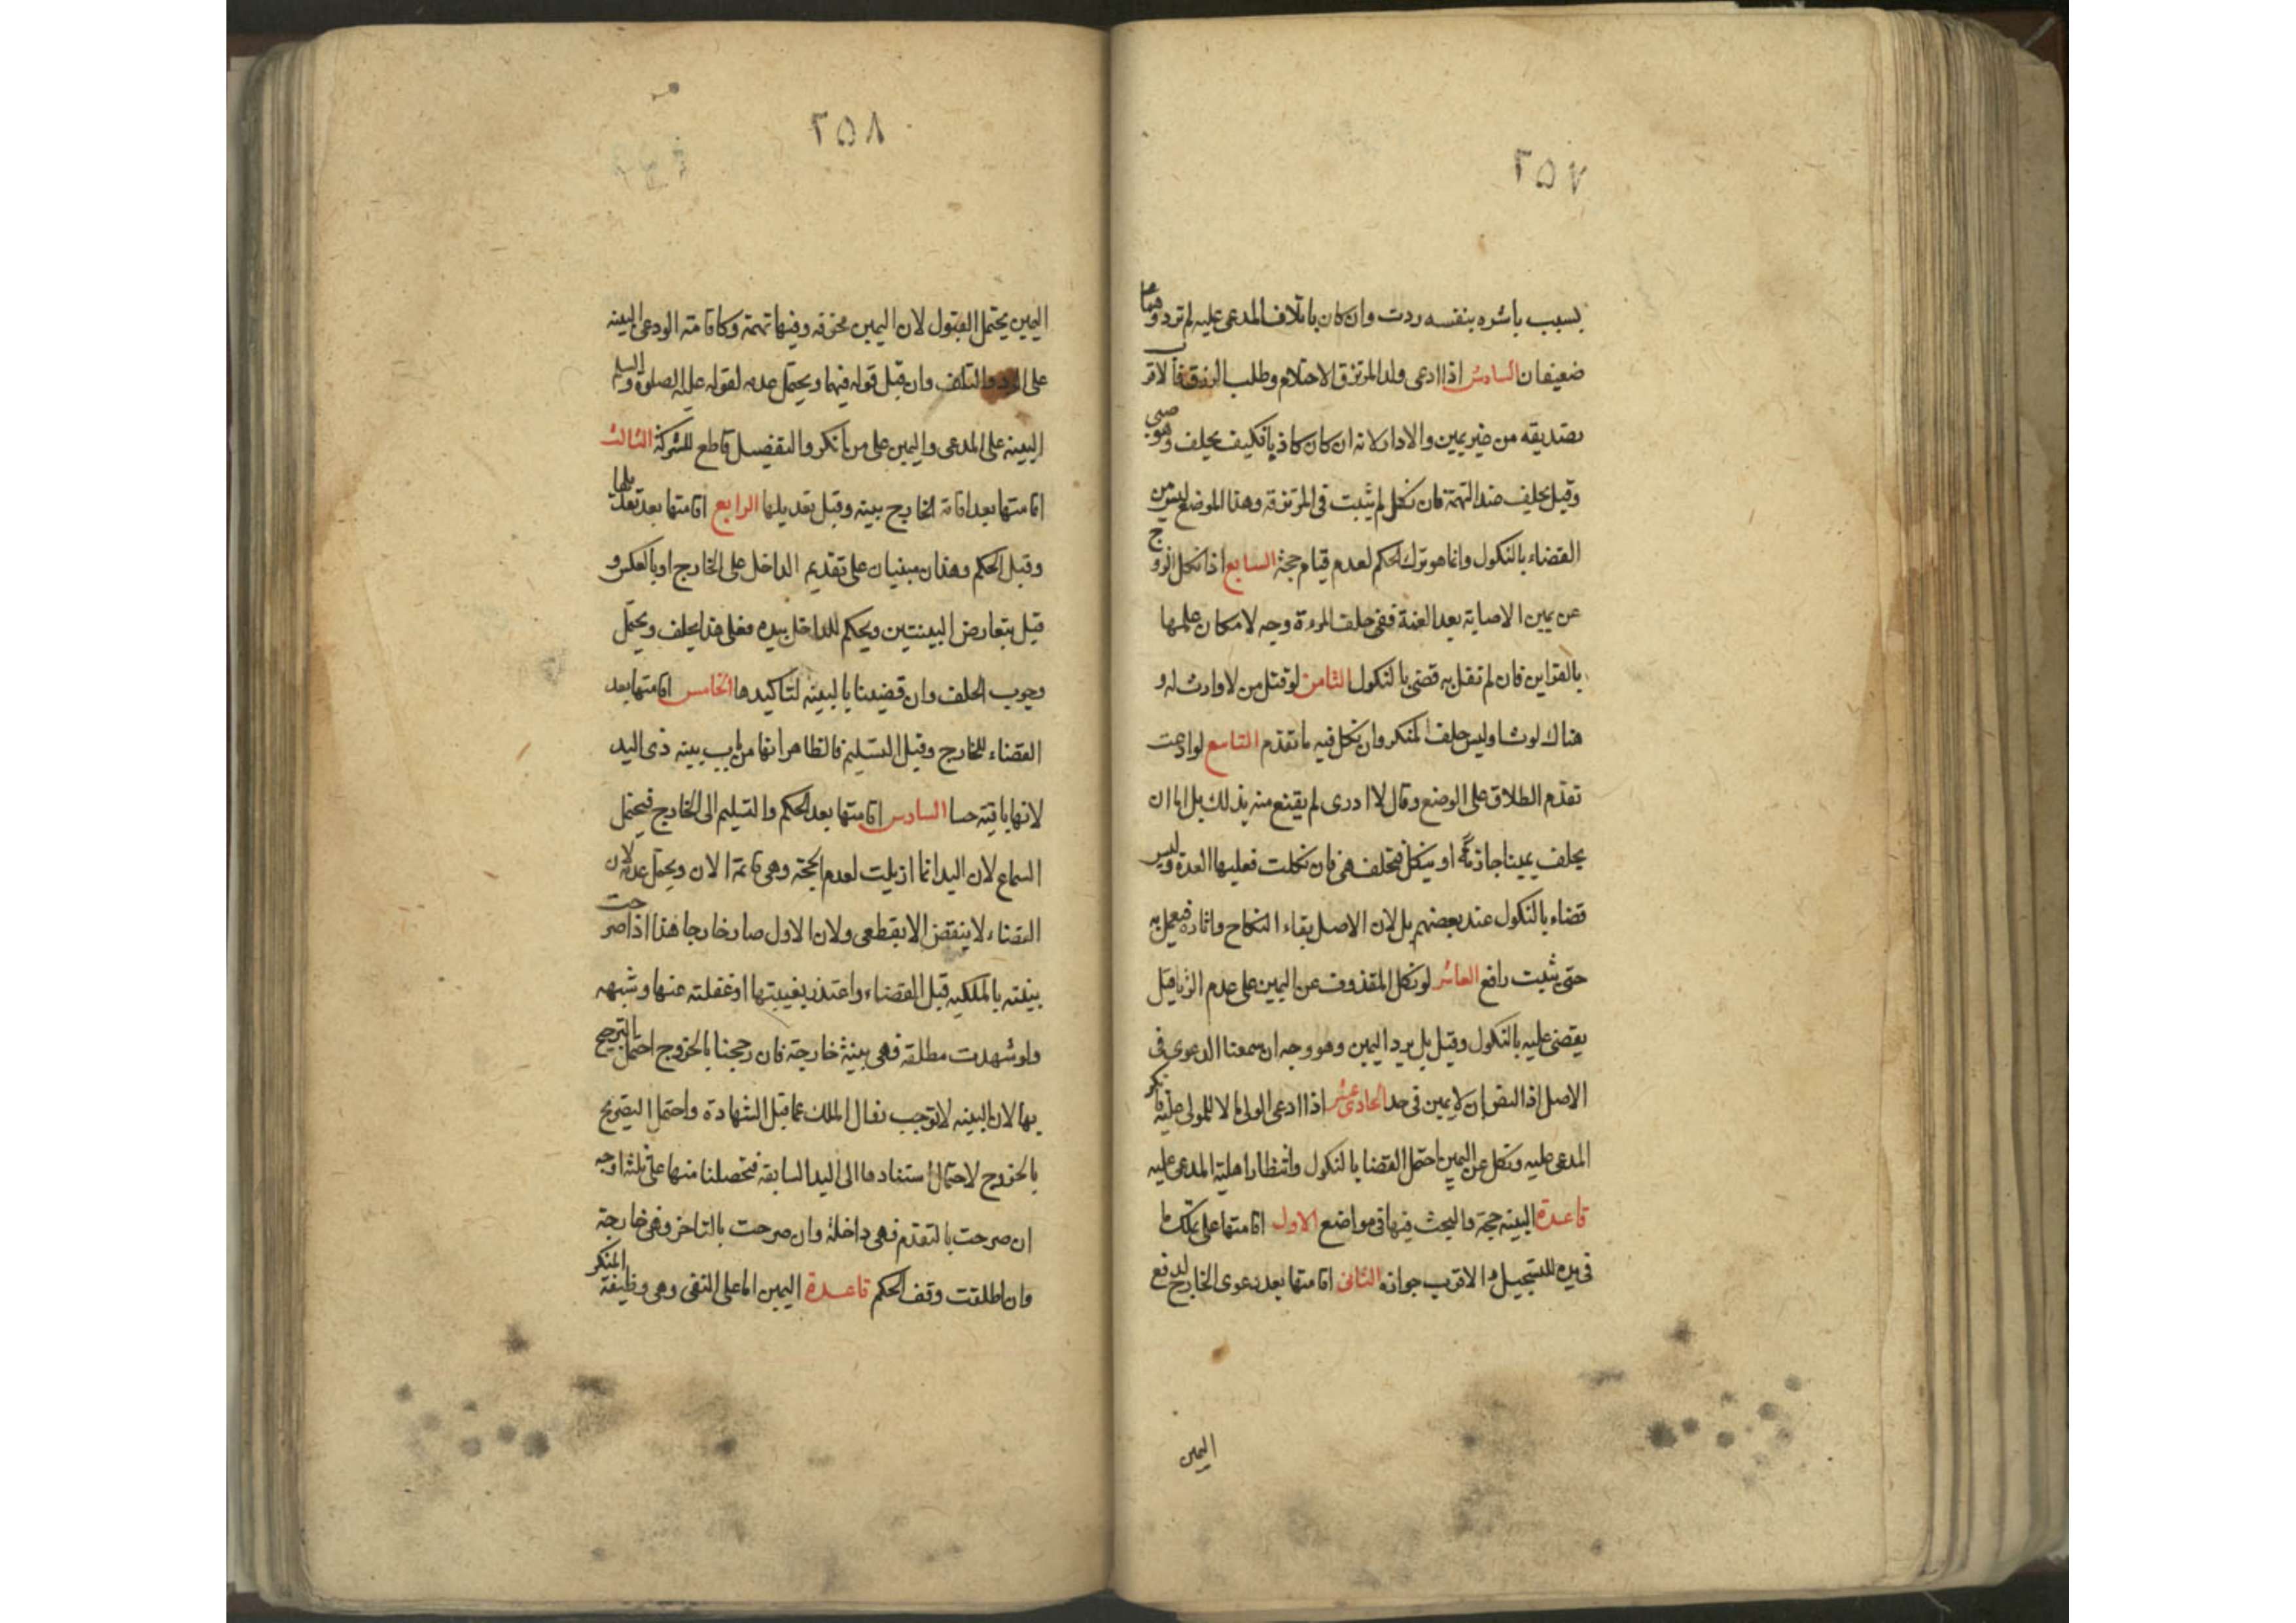 ٢٥٧
بسبب باشره بنفسه ردت وان كان باتلاف المدعى عليه لم ترد وهما
ضعيفان السادس اذا ادعى ولد المرتزق الاحتلام وطلب الرزق فالاقرب
تصديقه من غير يمين والا دار لانه ان كان كاذبا فكيف يحلف وهو صبى
وقيل يحلف عند التهمة فان نكل لم يثبت فى المرتزقه وهذا الموضع ليس من
القضاء بالنكول وانما هو ترك الحكم لعدم قيام حجة السابع اذا نكل الزوج
عن يمين الاصابة بعد العنة ففى حلف المرءة وجه لامكان علمها
بالقراين فان لم تقل به قضى بالنكول الثامن لو قتل من لا وارث له و
هناك لوث اوليس حلف المنكر وان نكل فيه ما تقدم التاسع لو ادعت
تقدم الطلاق على الوضع وقال لا ادرى لم يقنع منه بذلك بل اما ان
يحلف يمينا جازمة او ينكل فتحلف هى فان نكلت فعليها العدة وليس
قضاء بالنكول عند بعضهم بل لان الاصل بقاء النكاح واثاره فيعمل به
حتى يثبت رافع العاشر لو نكل المقذوف عن اليمين على عدم الزنا قيل
يقضى عليه بالنكول وقيل بل يرد اليمين وهو وجه ان سمعنا الدعوى فى
الاصل اذ النص ان لا يمين فى حد الحادى عشر اذا ادعى الولى مالا للمولى عليه فانكر
المدعى عليه ونكل عن اليمين احتمل القضا بالنكول وانتظار اهلية المدعى عليه
قاعدة البينه حجة والبحث فيها فى مواضع الاول اقامتها على تملك ما
فى يده للتسجيل والاقرب جوازه الثانى اقامتها بعد دعوى الخارج لدفع
اليمين
٢٥٨
اليمين يحتمل القبول لان اليمين مخوفه وفيها تهمة وكاقامته الودعى البينه
على الرد والتلف وان قبل قوله فيهما ويحتمل عدمه لقوله عليه الصلوة والسلم
البينه على المدعى واليمين على من انكر والتفصيل قاطع للشركة الثالث
اقامتها بعد اقامة الخارج بينه وقبل تعديلها الرابع اقامتها بعد تعديلها
وقبل الحكم وهذان مبنيان على تقديم الداخل على الخارج او بالعكس و
قيل بتعارض البينتين ويحكم للداخل بيده فعلى هذا يحلف ويحتمل
وجوب الحلف وان قضينا بالبينه لتاكيدها الخامس اقامتها بعد
القضاء للخارج وقبل التسليم فالظاهر انها من باب بينه ذى اليد
لانها باقية حسا السادس اقامتها بعد الحكم والتسليم الى الخارج فيحتمل
السماع لان اليد انما ازيلت لعدم الحجة وهى قائمة الان ويحتمل عدمه لان
القضاء لا ينقض الا بقطعى ولان الاول صار خارجا هذا اذا صرحت
بينته بالملكيه قبل القضاء واعتذر بغيبتها او غفلته عنها وشبهه
ولو شهدت مطلقه فهى بينة خارجة فان رجحنا بالخروج احتمل الترجيح
بها لان البينه لا توجب نفال الملك عما قبل الشهادة واحتمل التصريح
بالخروج لاحتمال استنادها الى اليد السابقه فتحصلنا منها على ثلثة اوجه
ان صرحت بالتقدم فهى داخلة وان صرحت بالتاخر فهى خارجة
وان اطلقت وقف الحكم قاعدة اليمين اما على النفى وهى وظيفة المنكر